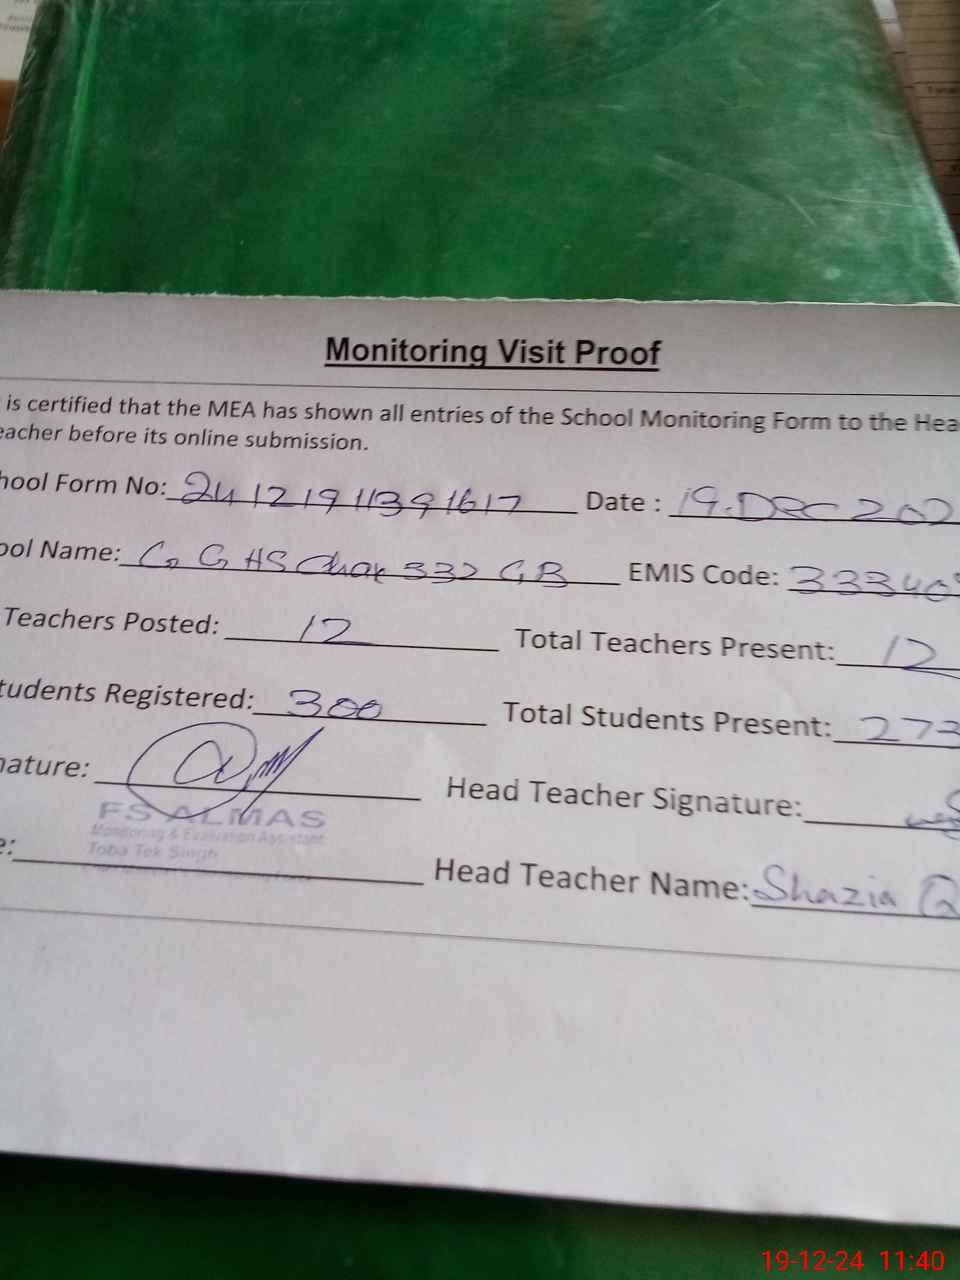 Monitoring Visit Proof
is certified that the MEA has shown all entries of the School Monitoring Form to the Hea
eacher before its online submission.
hool Form No: 24121911391617 Date : 19-DEC 202
ool Name: G G HS Chak 332 GB EMIS Code: 33340
Teachers Posted: 12 Total Teachers Present: 12
tudents Registered: 300 Total Students Present: 273
nature: Head Teacher Signature:
FS ALMAS
Monitoring & Evaluation Assistant
Toba Tek Singh
e: Head Teacher Name: Shazia Q
19-12-24 11:40